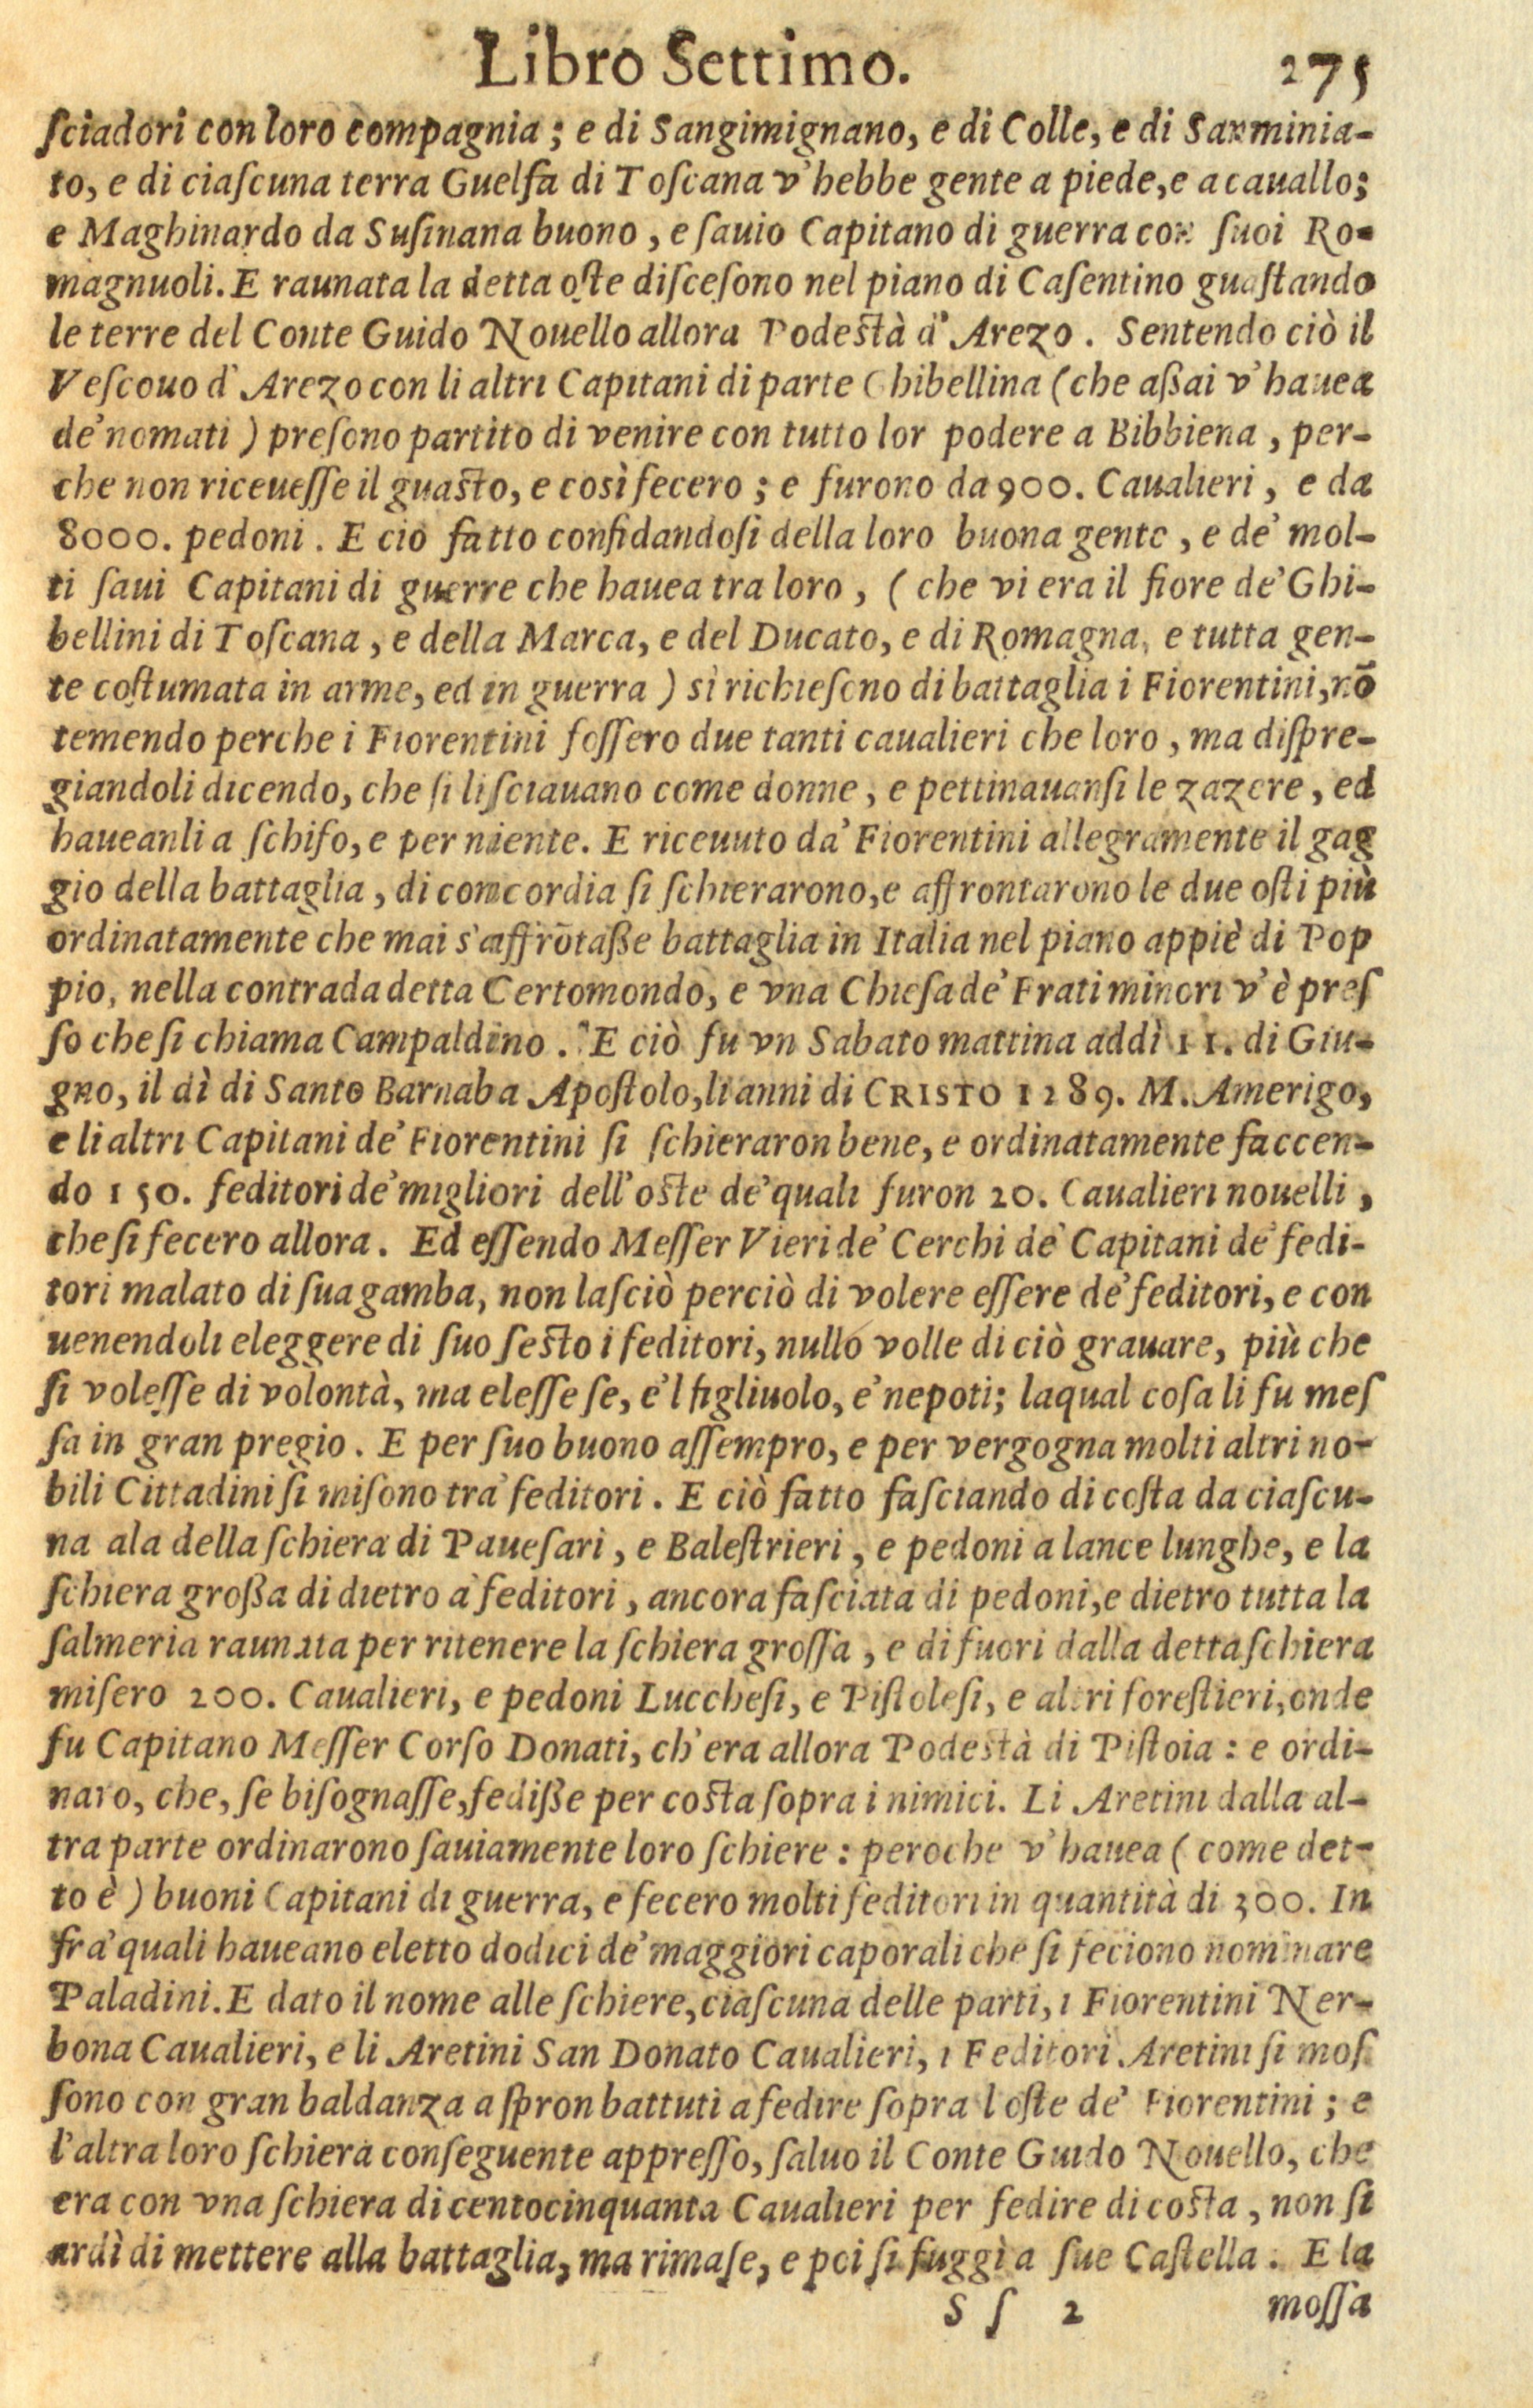 Libro Settimo. 275
ſciadori con loro compagnia; e di Sangimignano, e di Colle, e di Sanminia-
to, e di ciaſcuna terra Guelfa di Toſcana v'hebbe gente a piede, e a cauallo;
e Maghinardo da Suſinana buono, e ſauio Capitano di guerra con ſuoi Ro-
magnuoli. E raunata la detta oſte diſceſono nel piano di Caſentino guaſtando
le terre del Conte Guido Nouello allora Podeſtà d'Arezo. Sentendo ciò il
Veſcouo d'Arezo con li altri Capitani di parte Ghibellina (che aßai v'hauea
de'nomati) preſono partito di venire con tutto lor podere a Bibbiena, per-
che non riceueſſe il guaſto, e così fecero; e furono da 900. Caualieri, e da
8000. pedoni. E ciò fatto confidandoſi della loro buona gente, e de' mol-
ti ſaui Capitani di guerre che hauea tra loro, (che vi era il fiore de'Ghi-
bellini di Toſcana, e della Marca, e del Ducato, e di Romagna, e tutta gen-
te coſtumata in arme, ed in guerra) sì richieſono di battaglia i Fiorentini, nō
temendo perche i Fiorentini foſſero due tanti caualieri che loro, ma diſpre-
giandoli dicendo, che ſi liſciauano come donne, e pettinauanſi le zazere, ed
haueanli a ſchifo, e per niente. E riceuuto da' Fiorentini allegramente il gag
gio della battaglia, di concordia ſi ſchierarono, e affrontarono le due oſti più
ordinatamente che mai s'affrōtaße battaglia in Italia nel piano appiè di Pop
pio, nella contrada detta Certomondo, e vna Chieſa de' Frati minori v'è preſ
ſo che ſi chiama Campaldino. E ciò fu vn Sabato mattina addì 11. di Giu-
gno, il dì di Santo Barnaba Apoſtolo, li anni di CRISTO 1289. M. Amerigo,
e li altri Capitani de' Fiorentini ſi ſchieraron bene, e ordinatamente faccen-
do 150. feditori de'migliori dell'oſte de'quali furon 20. Caualieri nouelli,
che ſi fecero allora. Ed eſſendo Meſſer Vieri de' Cerchi de' Capitani de' fedi-
tori malato di ſua gamba, non laſciò perciò di volere eſſere de' feditori, e con
uenendoli eleggere di ſuo ſeſto i feditori, nullo volle di ciò grauare, più che
ſi voleſſe di volontà, ma eleſſe ſe, e'l figliuolo, e'nepoti; laqual coſa li fu meſ
ſa in gran pregio. E per ſuo buono aſſempro, e per vergogna molti altri no-
bili Cittadini ſi miſono tra' feditori. E ciò fatto faſciando di coſta da ciaſcu-
na ala della ſchiera di Paueſari, e Baleſtrieri, e pedoni a lance lunghe, e la
ſchiera großa di dietro a' feditori, ancora faſciata di pedoni, e dietro tutta la
ſalmeria raunata per ritenere la ſchiera groſſa, e di fuori dalla detta ſchiera
miſero 200. Caualieri, e pedoni Luccheſi, e Piſtoleſi, e altri foreſtieri, onde
fu Capitano Meſſer Corſo Donati, ch'era allora Podeſtà di Piſtoia: e ordi-
naro, che, ſe biſognaſſe, fediße per coſta ſopra i nimici. Li Aretini dalla al-
tra parte ordinarono ſauiamente loro ſchiere: peroche v'hauea (come det-
to è) buoni Capitani di guerra, e fecero molti feditori in quantità di 300. In
fra'quali haueano eletto dodici de' maggiori caporali che ſi feciono nominare
Paladini. E dato il nome alle ſchiere, ciaſcuna delle parti, i Fiorentini Ner-
bona Caualieri, e li Aretini San Donato Caualieri, i Feditori Aretini ſi moſ
ſono con gran baldanza a ſpron battuti a fedire ſopra l'oſte de' Fiorentini; e
l'altra loro ſchiera conſeguente appreſſo, ſaluo il Conte Guido Nouello, che
era con vna ſchiera di centocinquanta Caualieri per fedire di coſta, non ſi
ardì di mettere alla battaglia, ma rimaſe, e poi ſi fuggì a ſue Caſtella. E la
S ſ 2 moſſa